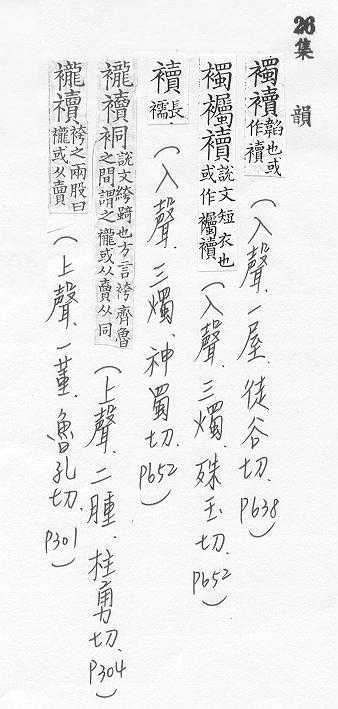 26
集韻
襡襩韜也或作襩(入聲.一屋.徒谷切.P638)
襡襹襩說文短衣也或作襹襩(入聲.三燭.殊玉切.P652)
襩長襦(入聲.三燭.神蜀切.P652)
襱襩裥說文絝踦也方言袴齊魯之間謂之襱或从賣从同(上聲.二腫.柱勇切.P304)
襱襩袴之兩股曰襱或从賣(上聲.一董.魯孔切.P301)